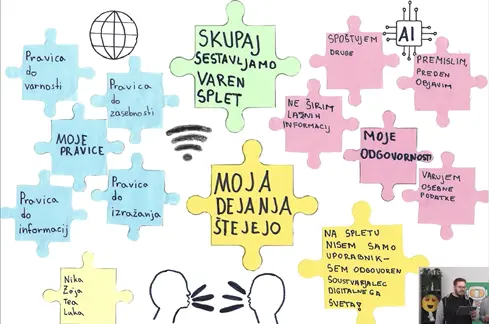 SKUPAJ
SESTAVLJAMO
VAREN
SPLET
AI
Pravica
do
varnosti
Pravica
do
zasebnosti
MOJE
PRAVICE
Pravica
do
informacij
Pravica
do
izražanja
SPOŠTUJEM
DRUGE
PREMISLIM,
PREDEN
OBJAVIM
NE ŠIRIM
LAŽNIH
INFORMACIJ
MOJE
ODGOVORNOSTI
VARUJEM
OSEBNE
PODATKE
MOJA
DEJANJA
ŠTEJEJO
NA SPLETU
NISEM SAMO
UPORABNIK-
SEM ODGOVOREN
SOUSTVARJALEC
DIGITALNEGA
SVETA!
Nika
Zoja
Tea
Luka